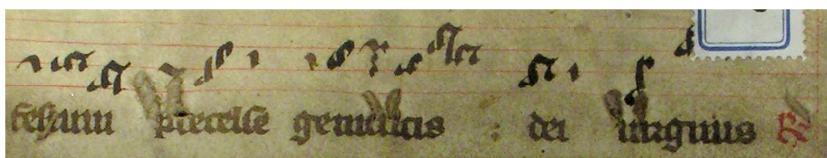 precelse genitricis : dei uirginis R